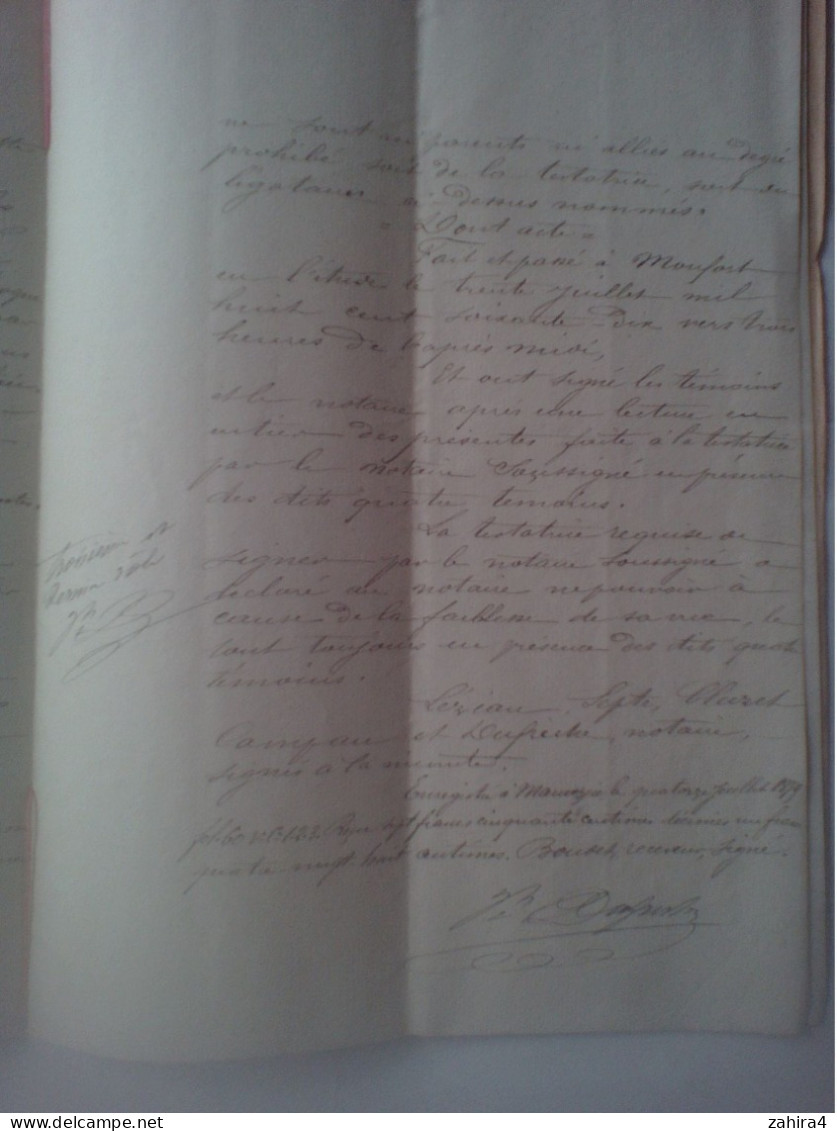 ne sont ni parents ni alliés au degré
prohibé soit de la testatrice, soit du
légataire ci-dessus nommés.
= Dont acte =
Fait et passé à Monfort
en l'étude le trente juillet mil
huit cent soixante-dix vers trois
heures de l'après midi,
Et ont signé les témoins
et le notaire après une lecture en
entier des présentes faite à la testatrice
par le notaire soussigné en présence
des dits quatre témoins.
La testatrice requise de
signer par le notaire soussigné a
déclaré au notaire ne pouvoir à
cause de la faiblesse de sa vue, le
tout toujours en présence des dits quatre
témoins.
Septe, Cluzet
Campan et Dufréche, notaire,
signés à la minute.
Enregistré à Mauvezin le quatorze juillet 1879
Reçu sept francs cinquante centimes décimes un franc
quatre vingt huit centimes. Bousset, receveur, signé.
troisième